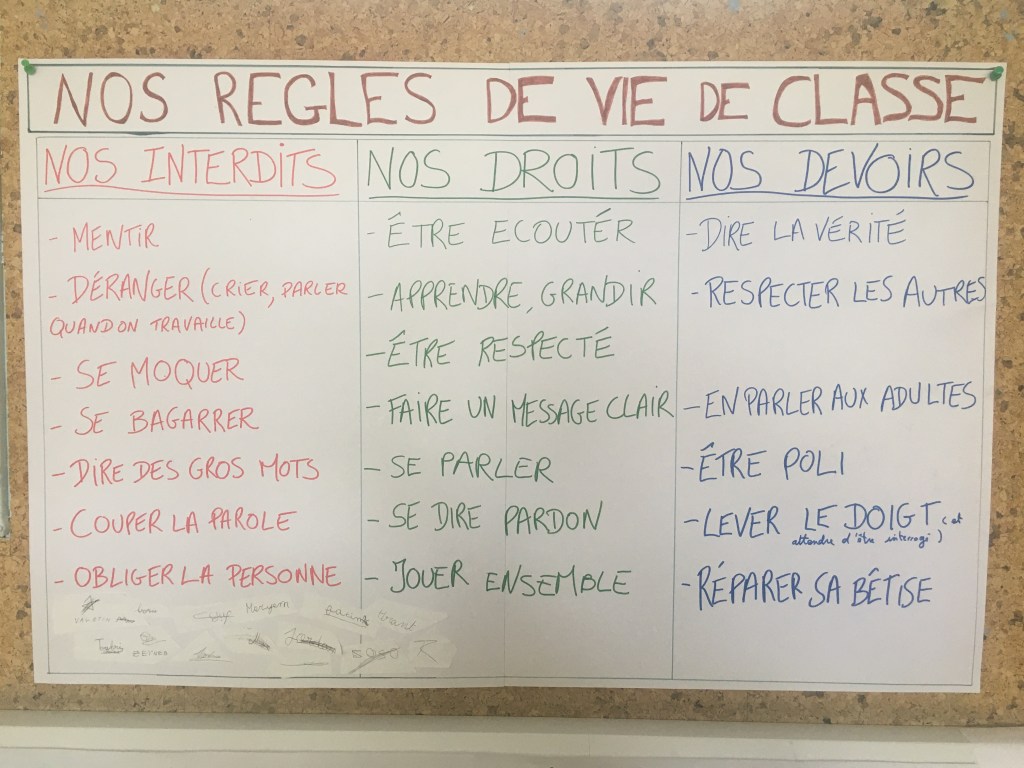 NOS REGLES DE VIE DE CLASSE
NOS INTERDITS
- MENTIR
- DÉRANGER (CRIER, PARLER
QUAND ON TRAVAILLE)
- SE MOQUER
- SE BAGARRER
- DIRE DES GROS MOTS
- COUPER LA PAROLE
- OBLIGER LA PERSONNE
Meryem
NOS DROITS
- ÊTRE ECOUTÉR
- APPRENDRE, GRANDIR
- ÊTRE RESPECTÉ
- FAIRE UN MESSAGE CLAIR
- SE PARLER
- SE DIRE PARDON
- JOUER ENSEMBLE
NOS DEVOIRS
- DIRE LA VÉRITÉ
- RESPECTER LES AUTRES
- EN PARLER AUX ADULTES
- ÊTRE POLI
- LEVER LE DOIGT (et
attendre d'être interrogé)
- RÉPARER SA BÊTISE